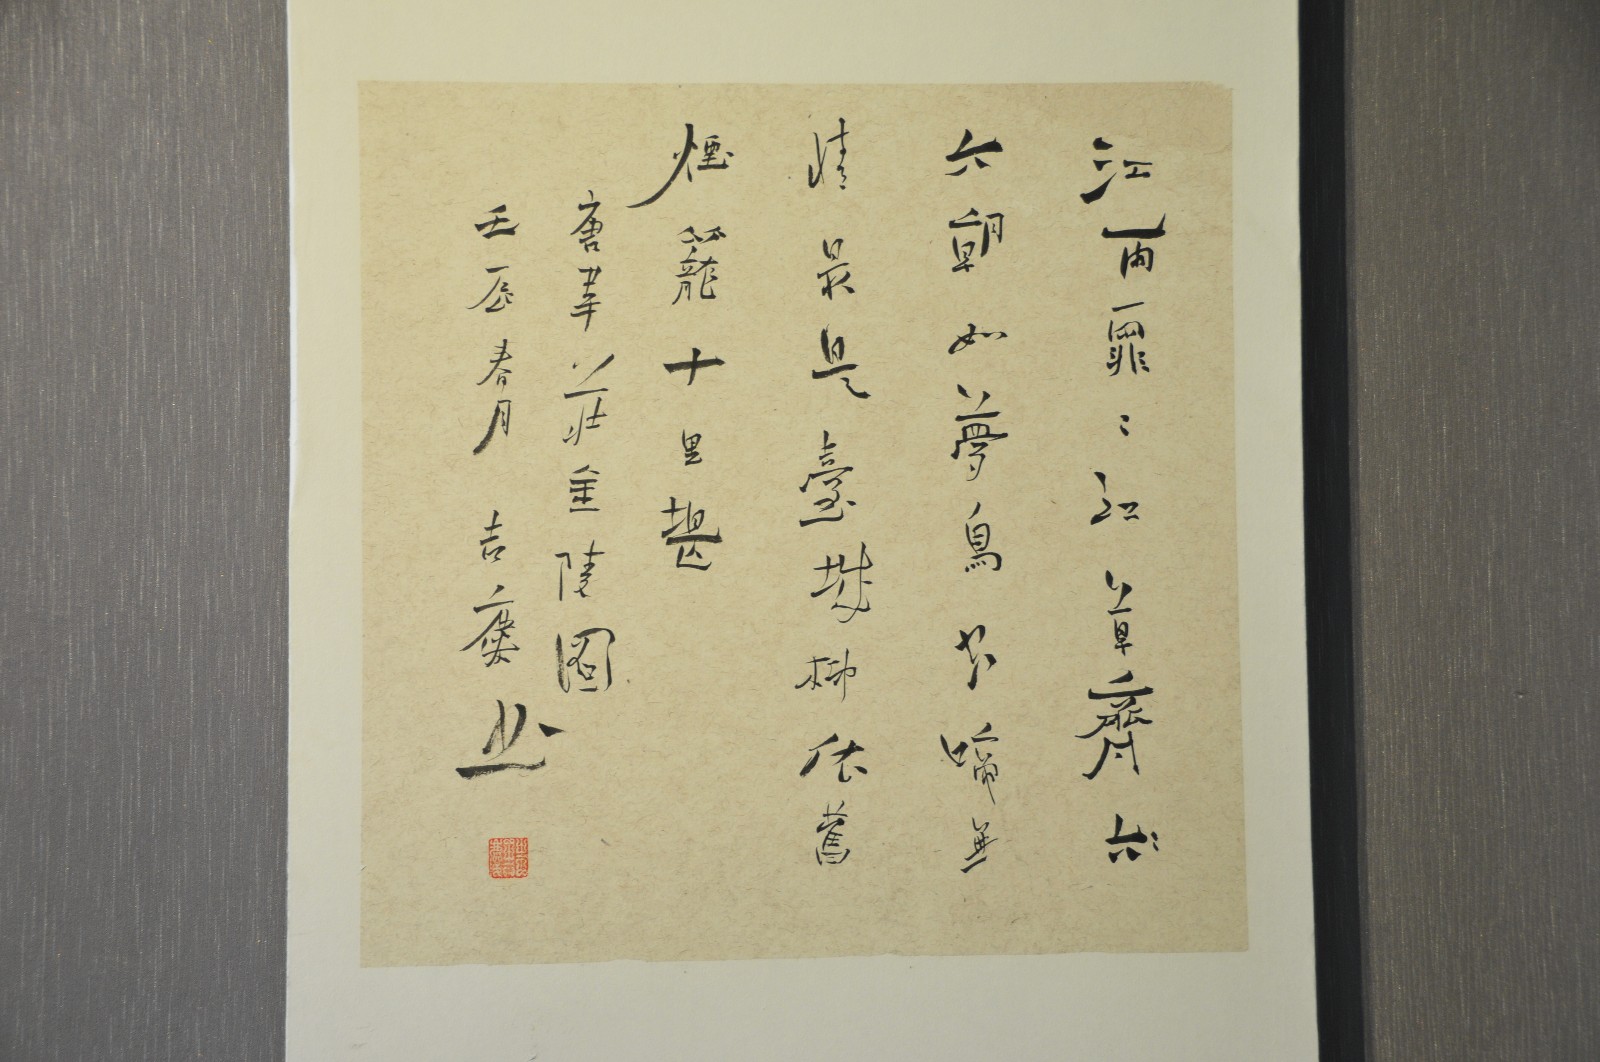 江雨霏〻江草齊六〻
六朝如夢鳥空啼無
情最是臺城柳依舊
煙籠十里堤
唐韋莊金陵圖
壬辰春月吉